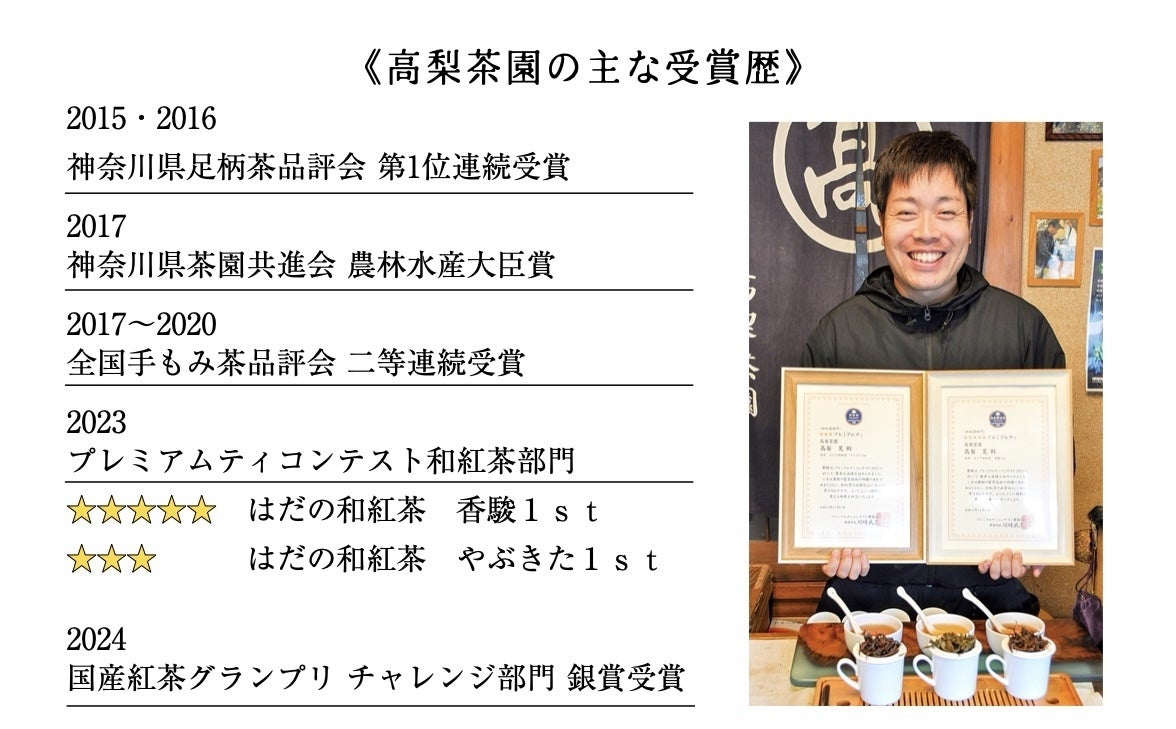 《高梨茶園の主な受賞歴》
2015・2016
神奈川県足柄茶品評会 第1位連続受賞
2017
神奈川県茶園共進会 農林水産大臣賞
2017〜2020
全国手もみ茶品評会 二等連続受賞
2023
プレミアムティコンテスト和紅茶部門
☆☆☆☆☆ はだの和紅茶 香駿１ｓｔ
☆☆☆ はだの和紅茶 やぶきた１ｓｔ
2024
国産紅茶グランプリ チャレンジ部門 銀賞受賞
髙
茶園
プレミアムティ
高梨茶園
プレミアムティ
高梨茶園